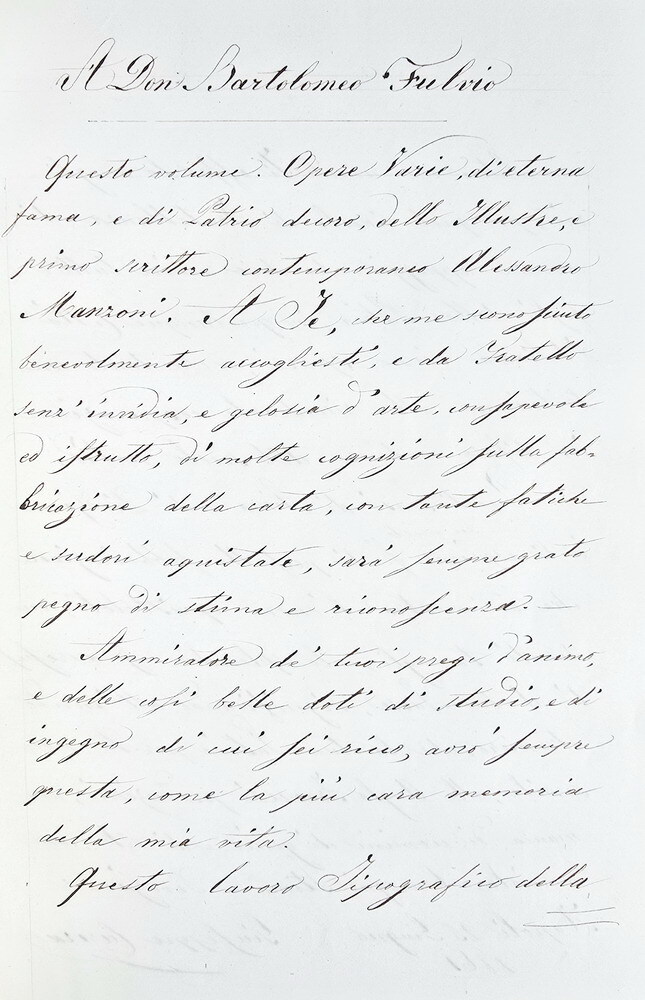 A Don Bartolomeo Fulvio
Questo volume. Opere Varie, di eterna
fama, e di Patrio decoro, dello Illustre, e
primo scrittore contemporaneo Alessandro
Manzoni. A Te, che me sconosciuto
benevolmente accogliesti, e da Fratello
senz' invidia, e gelosia d'arte, consapevole
ed istrutto, di molte cognizioni sulla fab=
bricazione della carta, con tante fatiche
e sudori aquistate, sarà sempre grato
pegno di stima e riconoscenza. —
Ammiratore de' tuoi pregi d'animo,
e delle così belle doti di studio, e di
ingegno di cui sei ricco, avrò sempre
questa, come la più cara memoria
della mia vita.
Questo lavoro Tipografico della